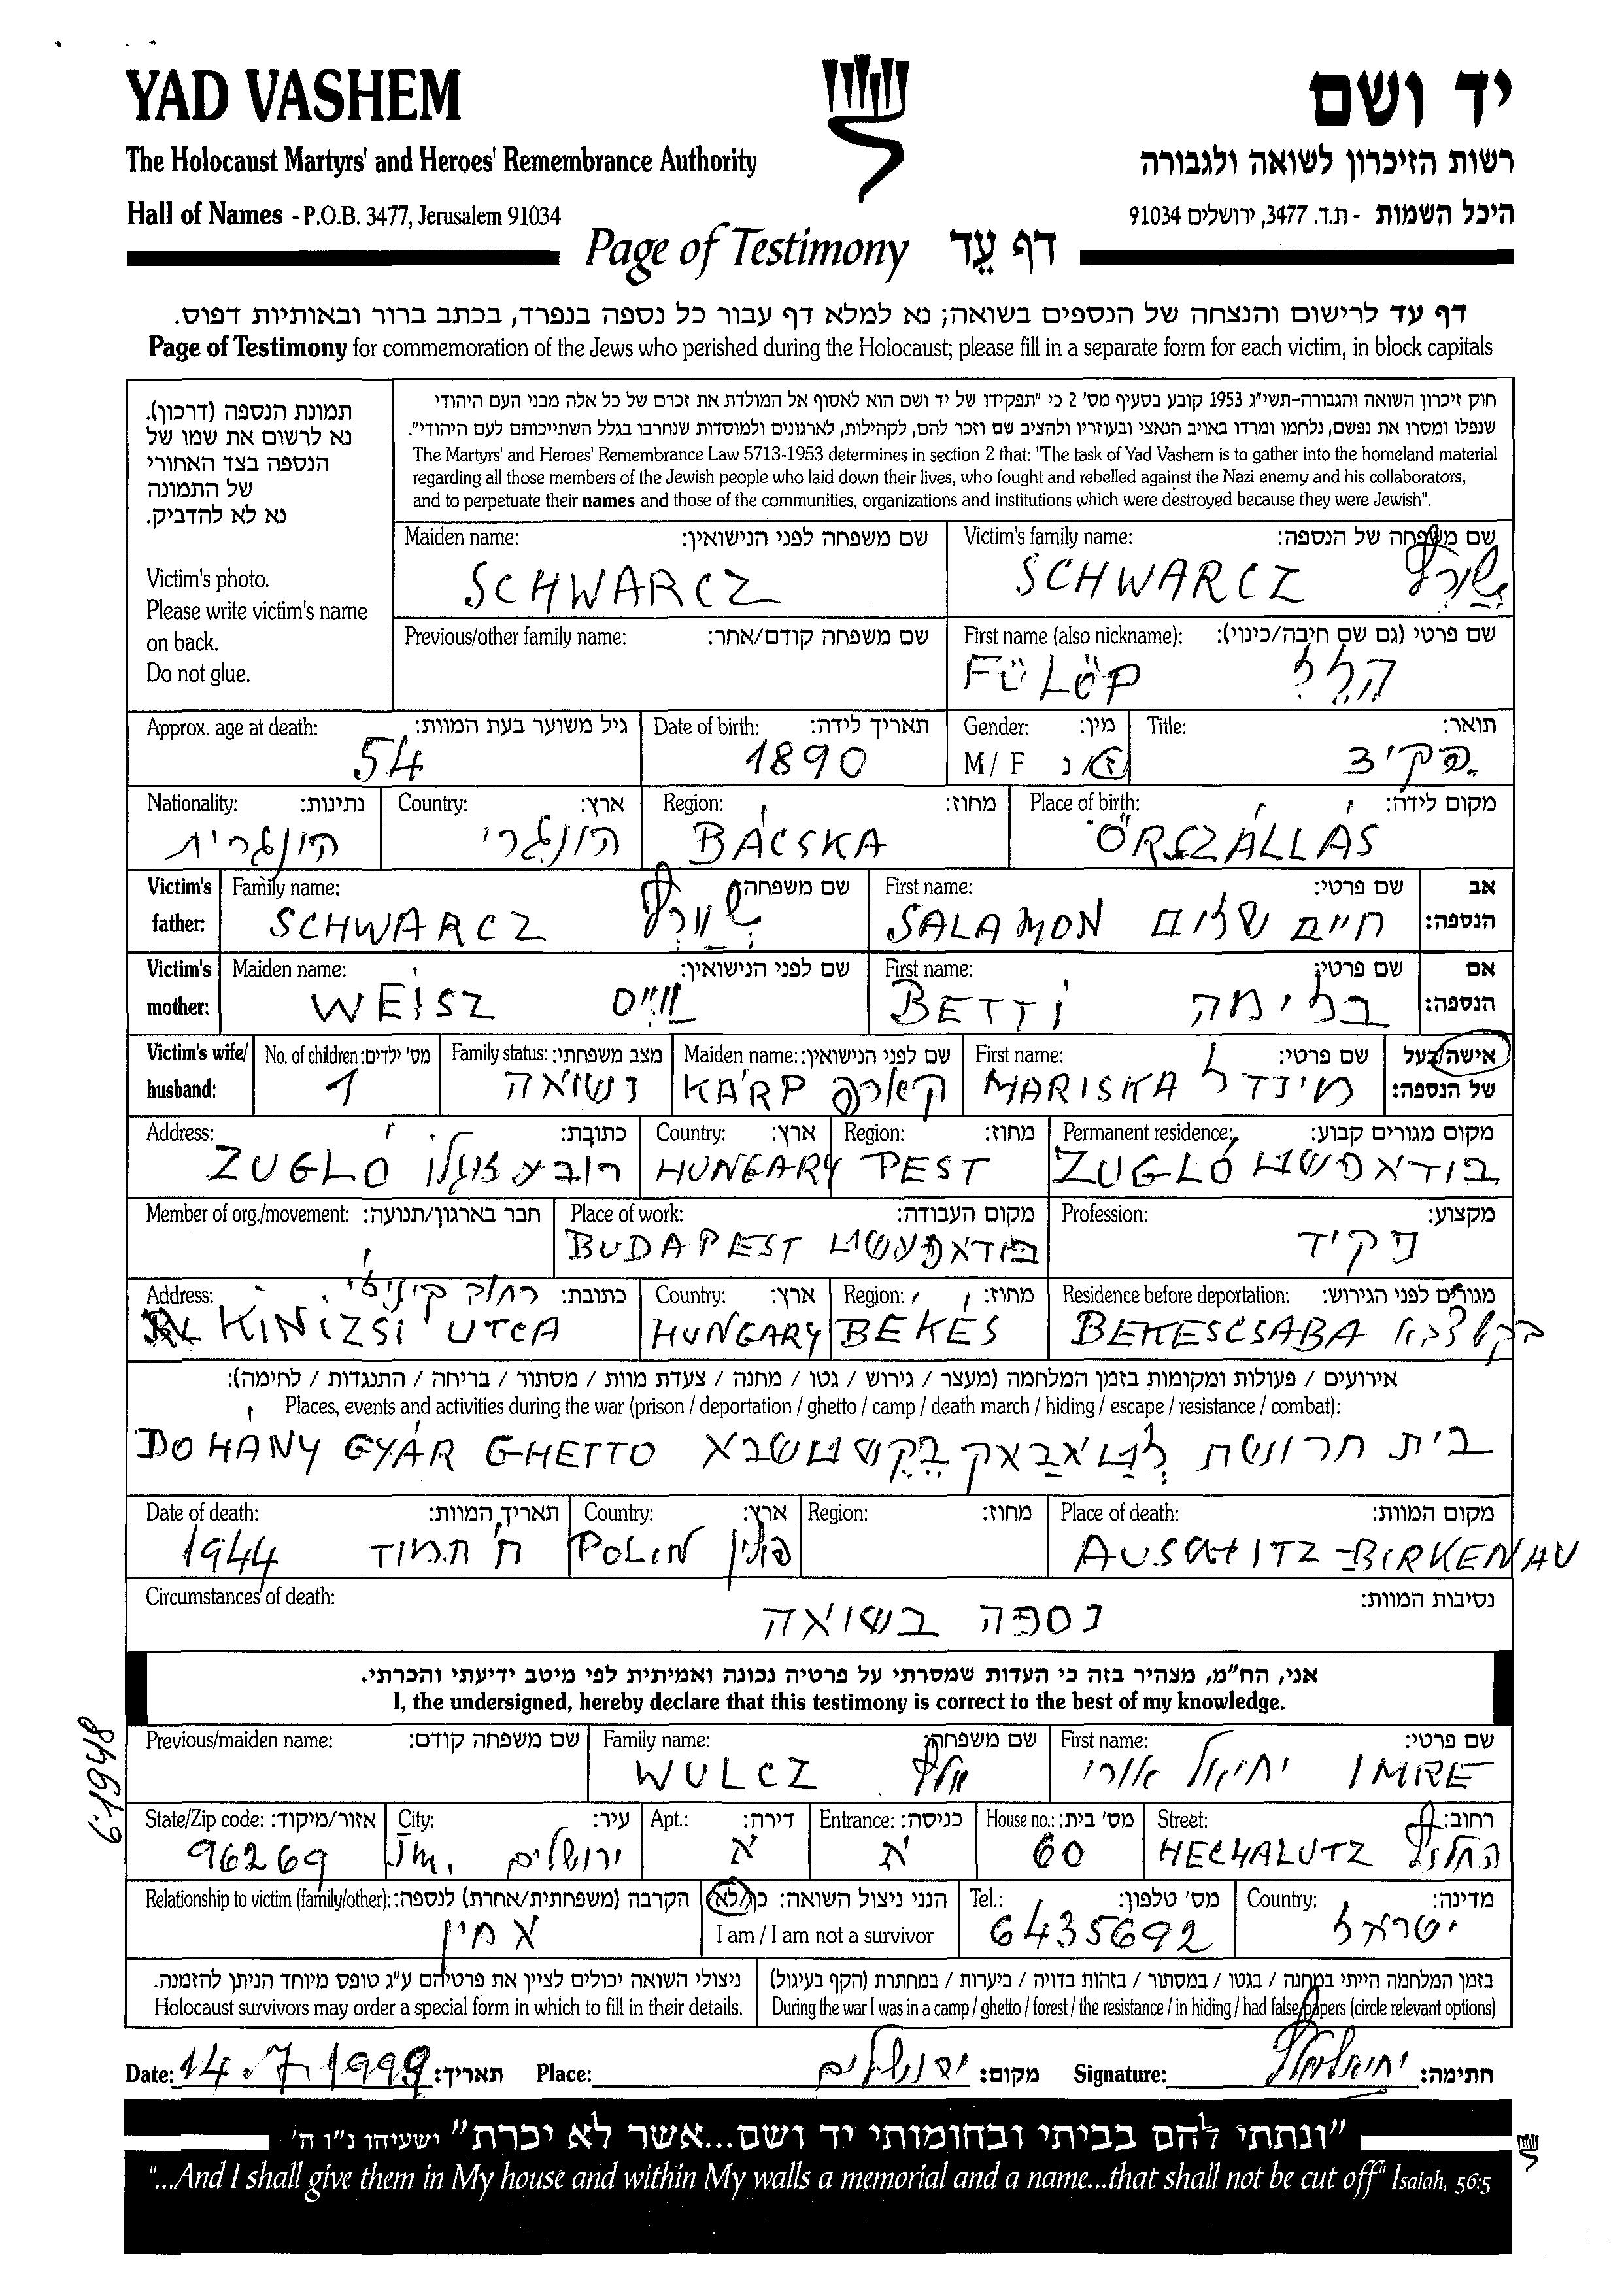 YAD VASHEM יד ושם
The Holocaust Martyrs' and Heroes' Remembrance Authority רשות הזיכרון לשואה ולגבורה
Hall of Names - P.O.B. 3477, Jerusalem 91034 היכל השמות - ת.ד. 3477, ירושלים 91034
Page of Testimony דף עֵד
דף עד לרישום והנצחה של הנספים בשואה; נא למלא דף עבור כל נספה בנפרד, בכתב ברור ובאותיות דפוס.
Page of Testimony for commemoration of the Jews who perished during the Holocaust; please fill in a separate form for each victim, in block capitals
תמונת הנספה (דרכון).
נא לרשום את שמו של
הנספה בצד האחורי
של התמונה
נא לא להדביק.
Victim's photo.
Please write victim's name
on back.
Do not glue.
חוק זיכרון השואה והגבורה-תשי"ג 1953 קובע בסעיף מס' 2 כי "תפקידו של יד ושם הוא לאסוף אל המולדת את זכרם של כל אלה מבני העם היהודי
שנפלו ומסרו את נפשם, נלחמו ומרדו באויב הנאצי ובעוזריו ולהציב שם וזכר להם, לקהילות, לארגונים ולמוסדות שנחרבו בגלל השתייכותם לעם היהודי".
The Martyrs' and Heroes' Remembrance Law 5713-1953 determines in section 2 that: "The task of Yad Vashem is to gather into the homeland material
regarding all those members of the Jewish people who laid down their lives, who fought and rebelled against the Nazi enemy and his collaborators,
and to perpetuate their names and those of the communities, organizations and institutions which were destroyed because they were Jewish".
Maiden name: שם משפחה לפני הנישואין: Victim's family name: שם משפחה של הנספה:
SCHWARCZ SCHWARCZ שַׁוַרְץ
Previous/other family name: שם משפחה קודם/אחר: First name (also nickname): שם פרטי (גם שם חיבה/כינוי):
FÜLÖP הלל
Approx. age at death: גיל משוער בעת המוות: Date of birth: תאריך לידה: Gender: מין: Title: תואר:
54 1890 M / F ז/נ פקיד
Nationality: נתינות: Country: ארץ: Region: מחוז: Place of birth: מקום לידה:
הונגרית הונגרי BÁCSKA ŐRSZÁLLÁS
Victim's father: Family name: שם משפחה: First name: שם פרטי: אב הנספה:
SCHWARCZ שַׁוַרְץ SALAMON חיים שלום
Victim's mother: Maiden name: שם לפני הנישואין: First name: שם פרטי: אם הנספה:
WEISZ וַייס BETTI בלימה
Victim's wife/ husband: No. of children: מס' ילדים: Family status: מצב משפחתי: Maiden name: שם לפני הנישואין: First name: שם פרטי: אישה/בעל של הנספה:
1 נשואה KÁRP קארפ MARISKA מינדל
Address: כתובת: Country: ארץ: Region: מחוז: Permanent residence: מקום מגורים קבוע:
ZUGLÓ רובע זוגלו HUNGARY PEST ZUGLÓ בודאפשט
Member of org./movement: חבר בארגון/תנועה: Place of work: מקום העבודה: Profession: מקצוע:
BUDAPEST בודאפעשט פקיד
Address: כתובת: Country: ארץ: Region: מחוז: Residence before deportation: מגורים לפני הגירוש:
רחוב קיניזי
KINIZSI UTCA HUNGARY BÉKÉS BEKESCSABA
אירועים / פעולות ומקומות בזמן המלחמה (מעצר / גירוש / גטו / מחנה / צעדת מוות / מסתור / בריחה / התנגדות / לחימה):
Places, events and activities during the war (prison / deportation / ghetto / camp / death march / hiding / escape / resistance / combat):
DOHÁNY GYÁR GHETTO בית חרושת לְטַאבַּאק
Date of death: תאריך המוות: Country: ארץ: Region: מחוז: Place of death: מקום המוות:
1944 ח תמוז POLIN פולין AUSCHITZ-BIRKENAU
Circumstances of death: נסיבות המוות:
נספה בשואה
אני, הח"מ, מצהיר בזה כי העדות שמסרתי על פרטיה נכונה ואמיתית לפי מיטב ידיעתי והכרתי.
I, the undersigned, hereby declare that this testimony is correct to the best of my knowledge.
Previous/maiden name: שם משפחה קודם: Family name: שם משפחה: First name: שם פרטי:
WULCZ וולץ יחיאל אורי IMRE
State/Zip code: אזור/מיקוד: City: עיר: Apt.: דירה: Entrance: כניסה: House no.: מס' בית: Street: רחוב:
96269 Jm. ירושלים א א 60 HECHALUTZ החלוץ
Relationship to victim (family/other): הקרבה (משפחתית/אחרת) לנספה: הנני ניצול השואה: כן/לא Tel.: מס' טלפון: Country: מדינה:
אחין I am / I am not a survivor 6435692 ישראל
ניצולי השואה יכולים לציין את פרטיהם ע"ג טופס מיוחד הניתן להזמנה. בזמן המלחמה הייתי במחנה / בגטו / במסתור / בזהות בדויה / ביערות / במחתרת (הקף בעיגול)
Holocaust survivors may order a special form in which to fill in their details. During the war I was in a camp / ghetto / forest / the resistance / in hiding / had false papers (circle relevant options)
Date: 14.7.1999 תאריך: Place: ירושלים מקום: Signature: חתימה:
"ונתתי להם בביתי ובחומותי יד ושם...אשר לא יכרת" ישעיהו נ"ו ה'
"...And I shall give them in My house and within My walls a memorial and a name...that shall not be cut off" Isaiah, 56:5